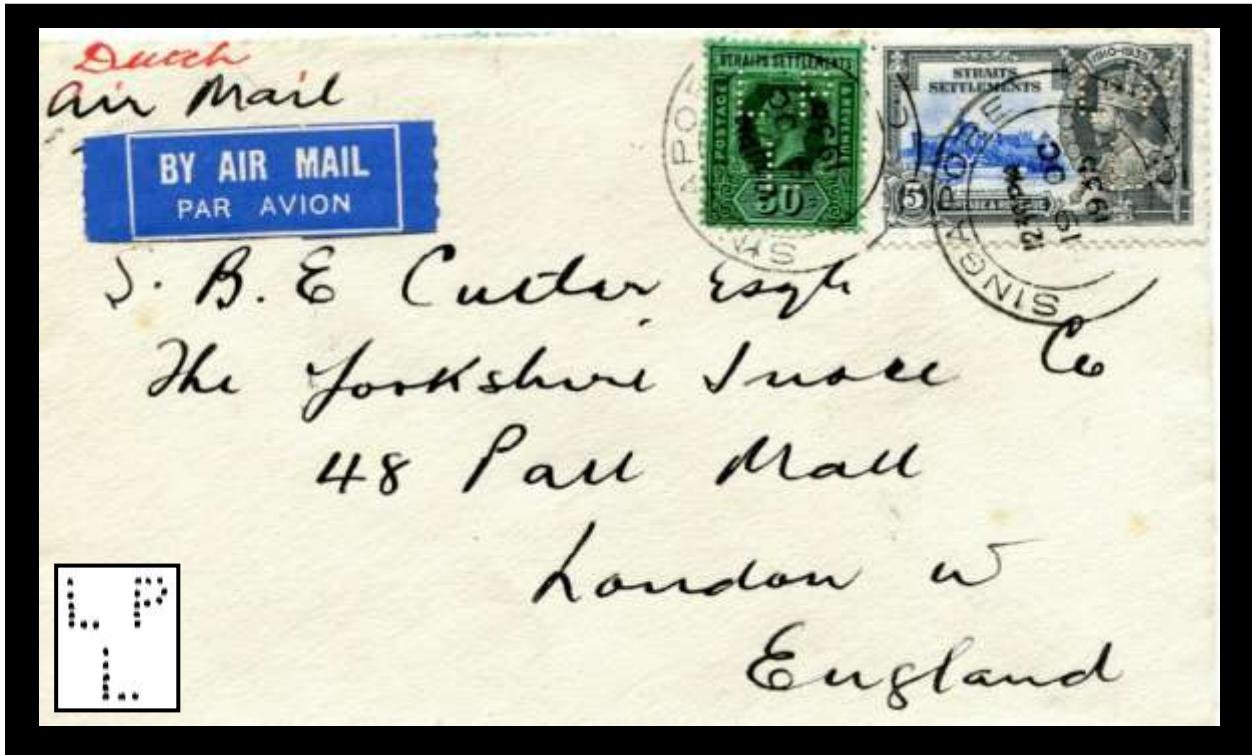 Dutch
Air Mail
BY AIR MAIL
PAR AVION
STRAITS SETTLEMENTS
POSTAGE
REVENUE
30
1910-1935
STRAITS
SETTLEMENTS
5
SINGAPORE
SINGAPORE
1935
19 OC
12.15 PM
J. B. E Cutter Esqr
The Yorkshire Insce Co
48 Pall Mall
London W
England
L P
L